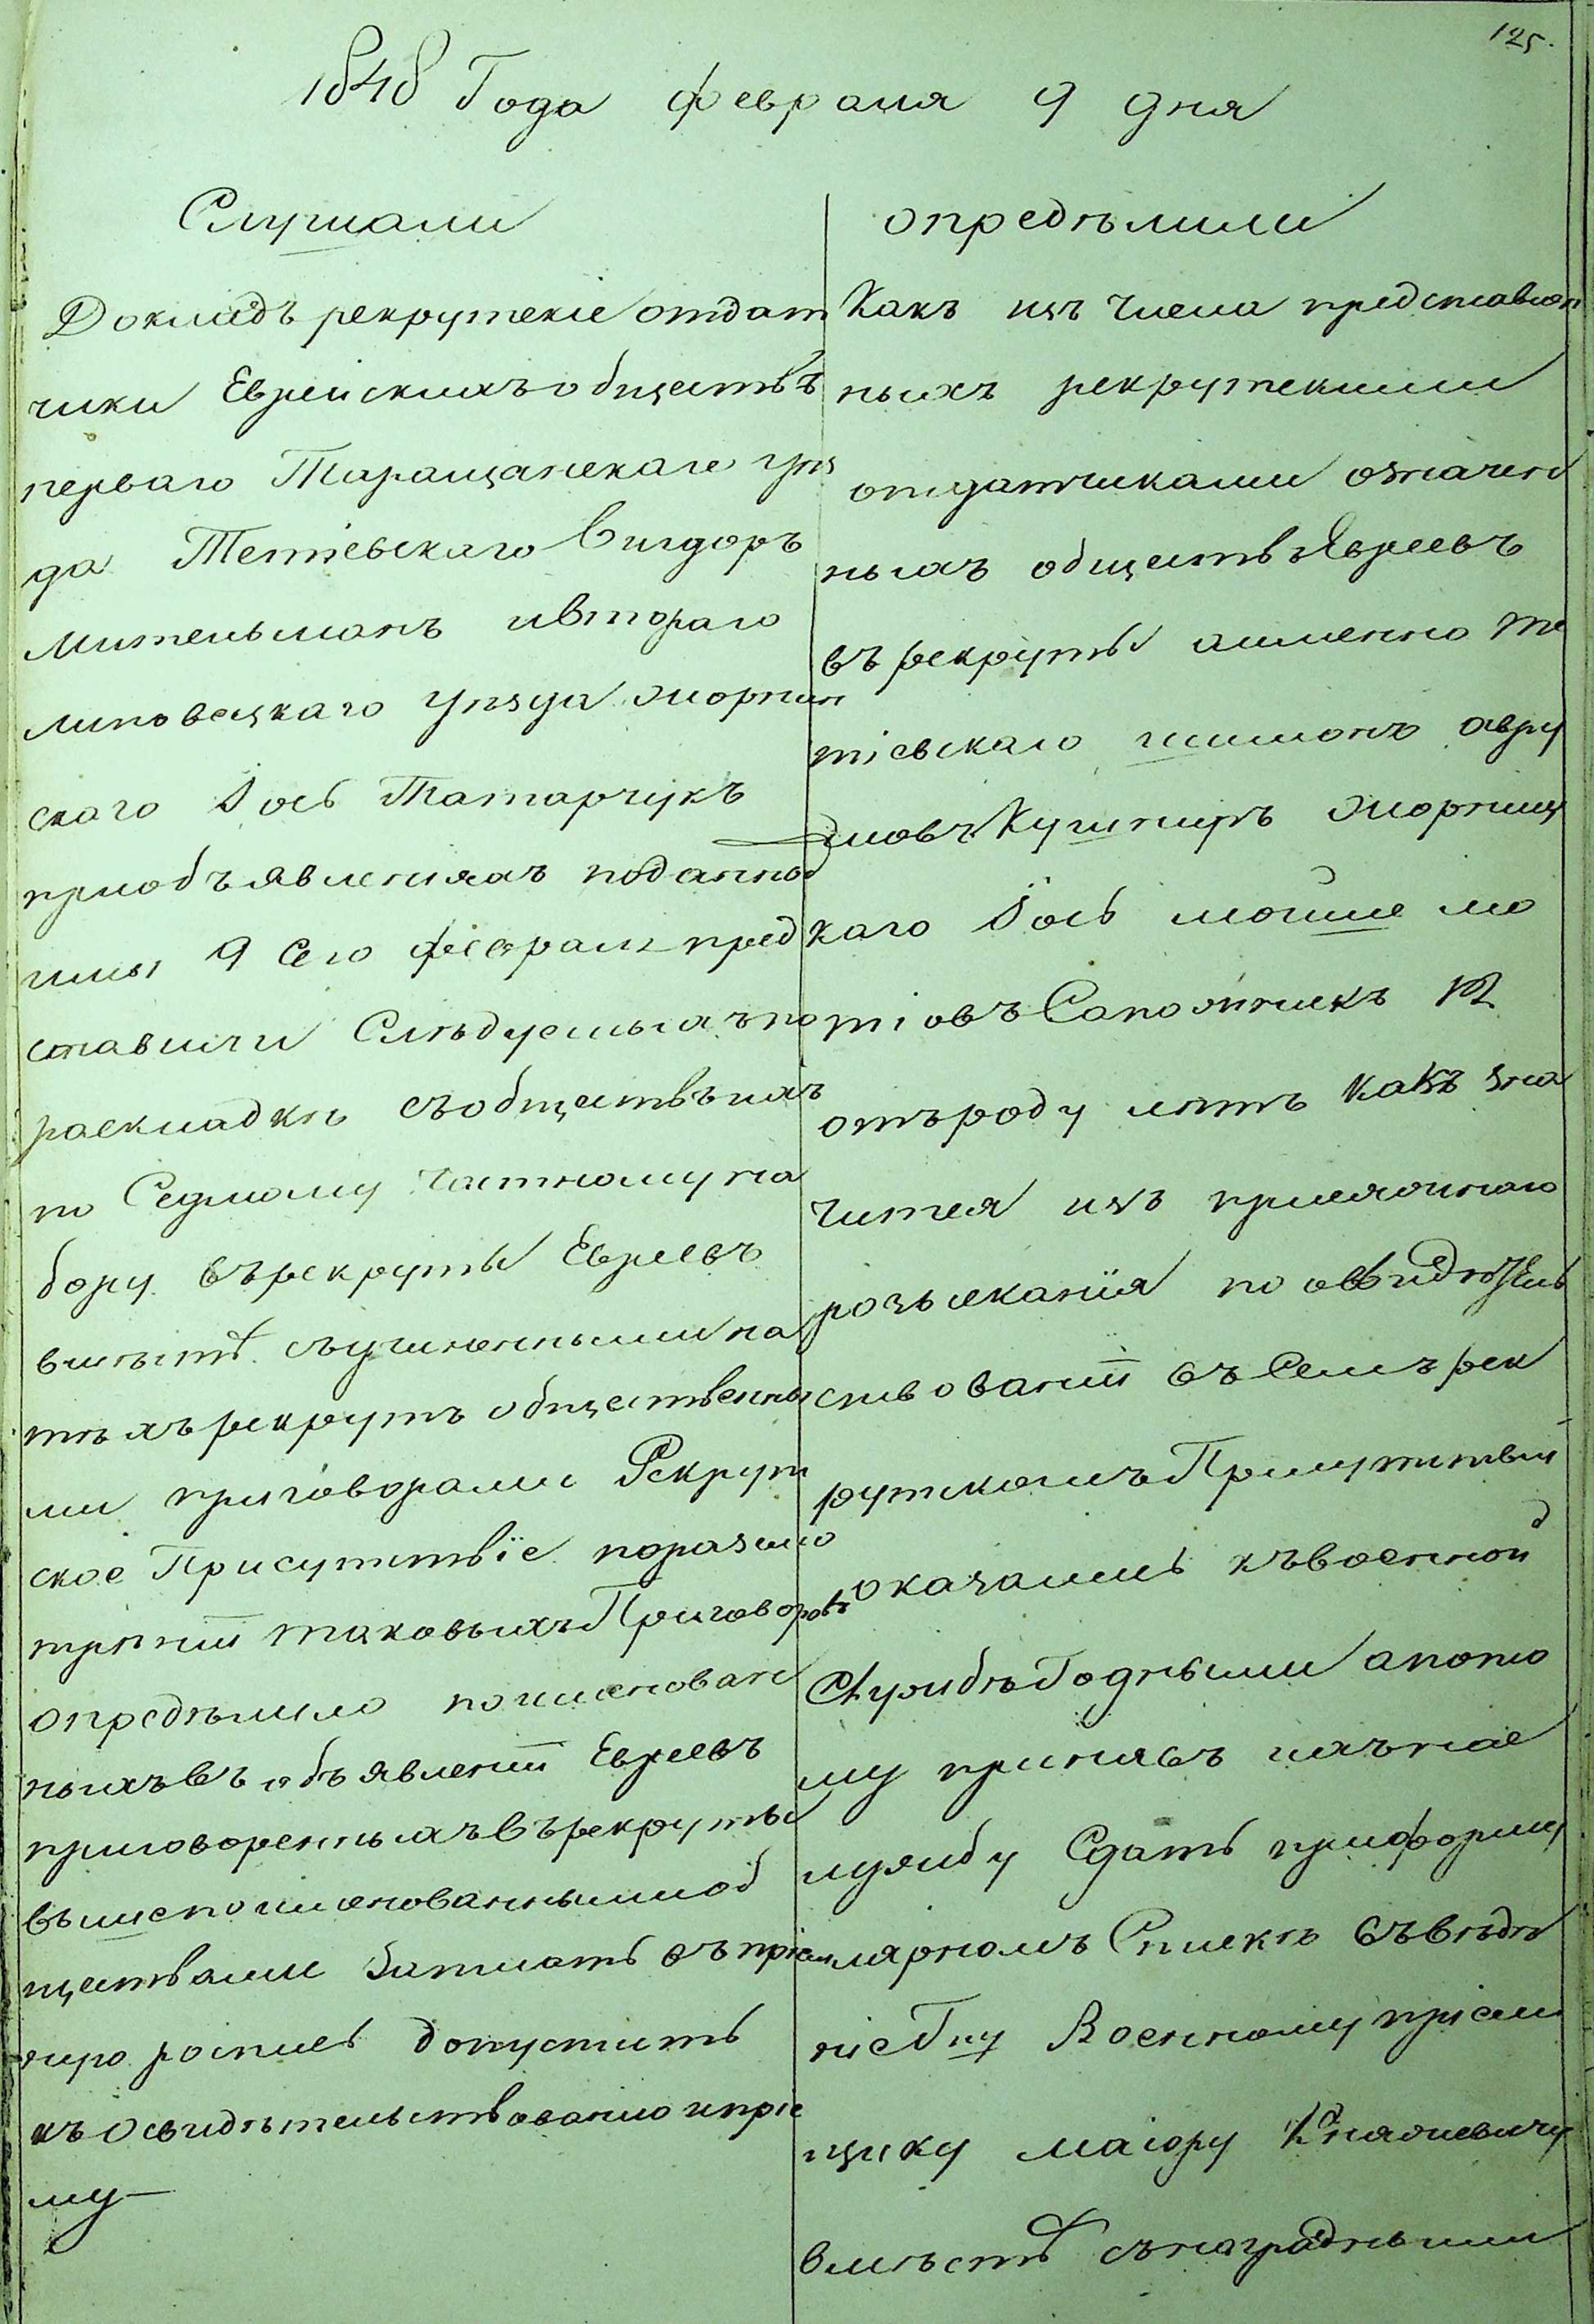 125.
1848 Года февраля 9 дня
Слушали
Докладъ рекрутскіе отдат
чики Еврейскихъ обществъ
перваго Таращанскаго уѣз
да Тетіевскаго Вигдоръ
Мительманъ и втораго
Липовецкаго уѣзда Жорнищ
скаго Іось Татарчукъ
при объявленіяхъ поданны
ими 9 сего февраля пред
ставили Слѣдуемыхъ по
раскладкѣ съ обществъ ихъ
по Седмому частному на
бору въ рекруты Евреевъ
вмѣстѣ съ учиненными на
тѣхъ рекрутъ общественны
ми приговорами Рекрут
ское Присутствіе по разсмо
трѣнии таковыхъ Приговоровъ
опредѣлило поименован
ныхъ въ объявлении Евреевъ
приговоренныхъ въ рекруты
вышепоименованными об
ществами Записать въ пріем
ную роспись допустить
къ освидѣтельствованію и пріе
му —
опредѣлили
Какъ изъ числа представлен
ныхъ рекрутскими
отдатчиками означен
ныхъ обществъ Евреевъ
въ рекруты а именно Те
тіевскаго Шимонъ Авру
мовъ Кушниръ Жорнищ
каго Іось Мошко Мо
тіовъ Сапожникъ 12
отъ роду лѣтъ какъ зна
чится изъ приложеннаго
розысканія по освидѣтель
ствовании въ Семъ рек
рутскомъ Присутствии
оказались къ военной
Службѣ Годными а пото
му принявъ ихъ на с
лужбу Сдать при форму
лярномъ Спискѣ въ вѣдѣ
ніе Гну Военному пріем
щику маіору
вмѣстѣ съ наградными